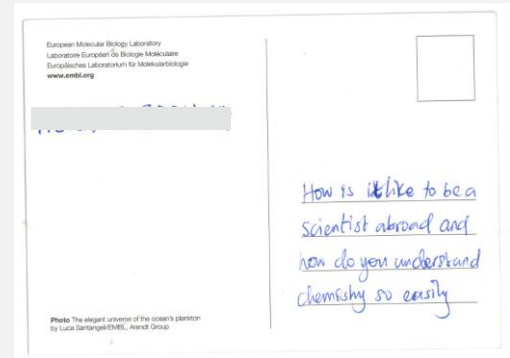 European Molecular Biology Laboratory
Laboratoire Européen de Biologie Moléculaire
Europäisches Laboratorium für Molekularbiologie
www.embl.org
How is it like to be a
scientist abroad and
how do you understand
chemistry so easily
Photo The elegant universe of the ocean's plankton
by Luca Santangeli/EMBL, Arendt Group